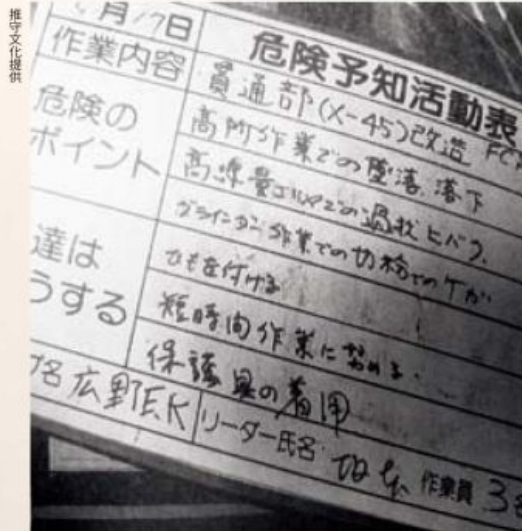 推守文化提供
月17日
危険予知活動表
作業内容
貫通部(X-45)改造
危険の
ポイント
高所作業での墜落、落下
高線量エリアでの過状ヒバク、
グラインダー作業での切粉でのケガ、
達は
うする
ひもを付ける
短時間作業に努める、
保護具の着用
名 広野E,K リーダー氏名 作業員 3名